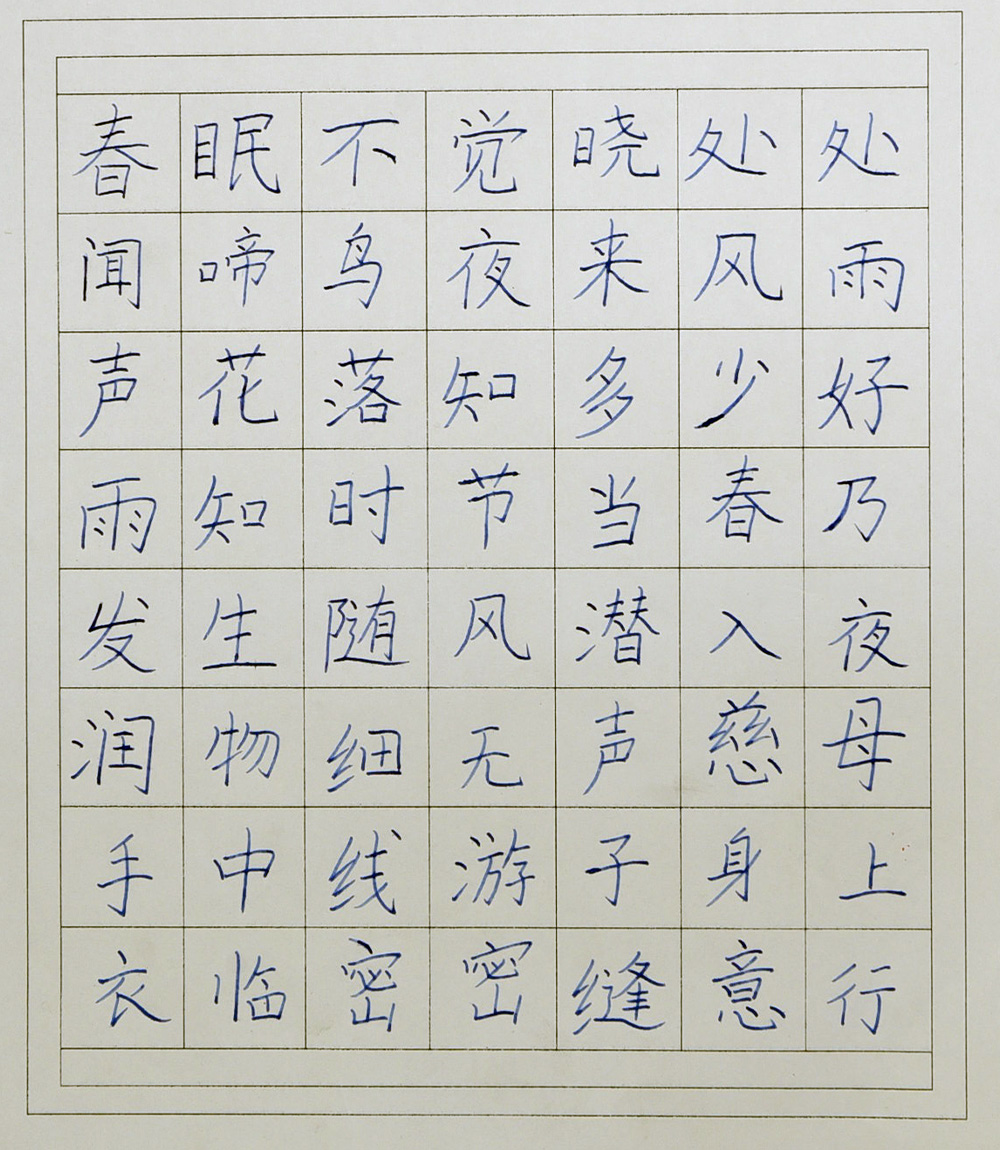 春眠不觉晓处处
闻啼鸟夜来风雨
声花落知多少好
雨知时节当春乃
发生随风潜入夜
润物细无声慈母
手中线游子身上
衣临密密缝意行